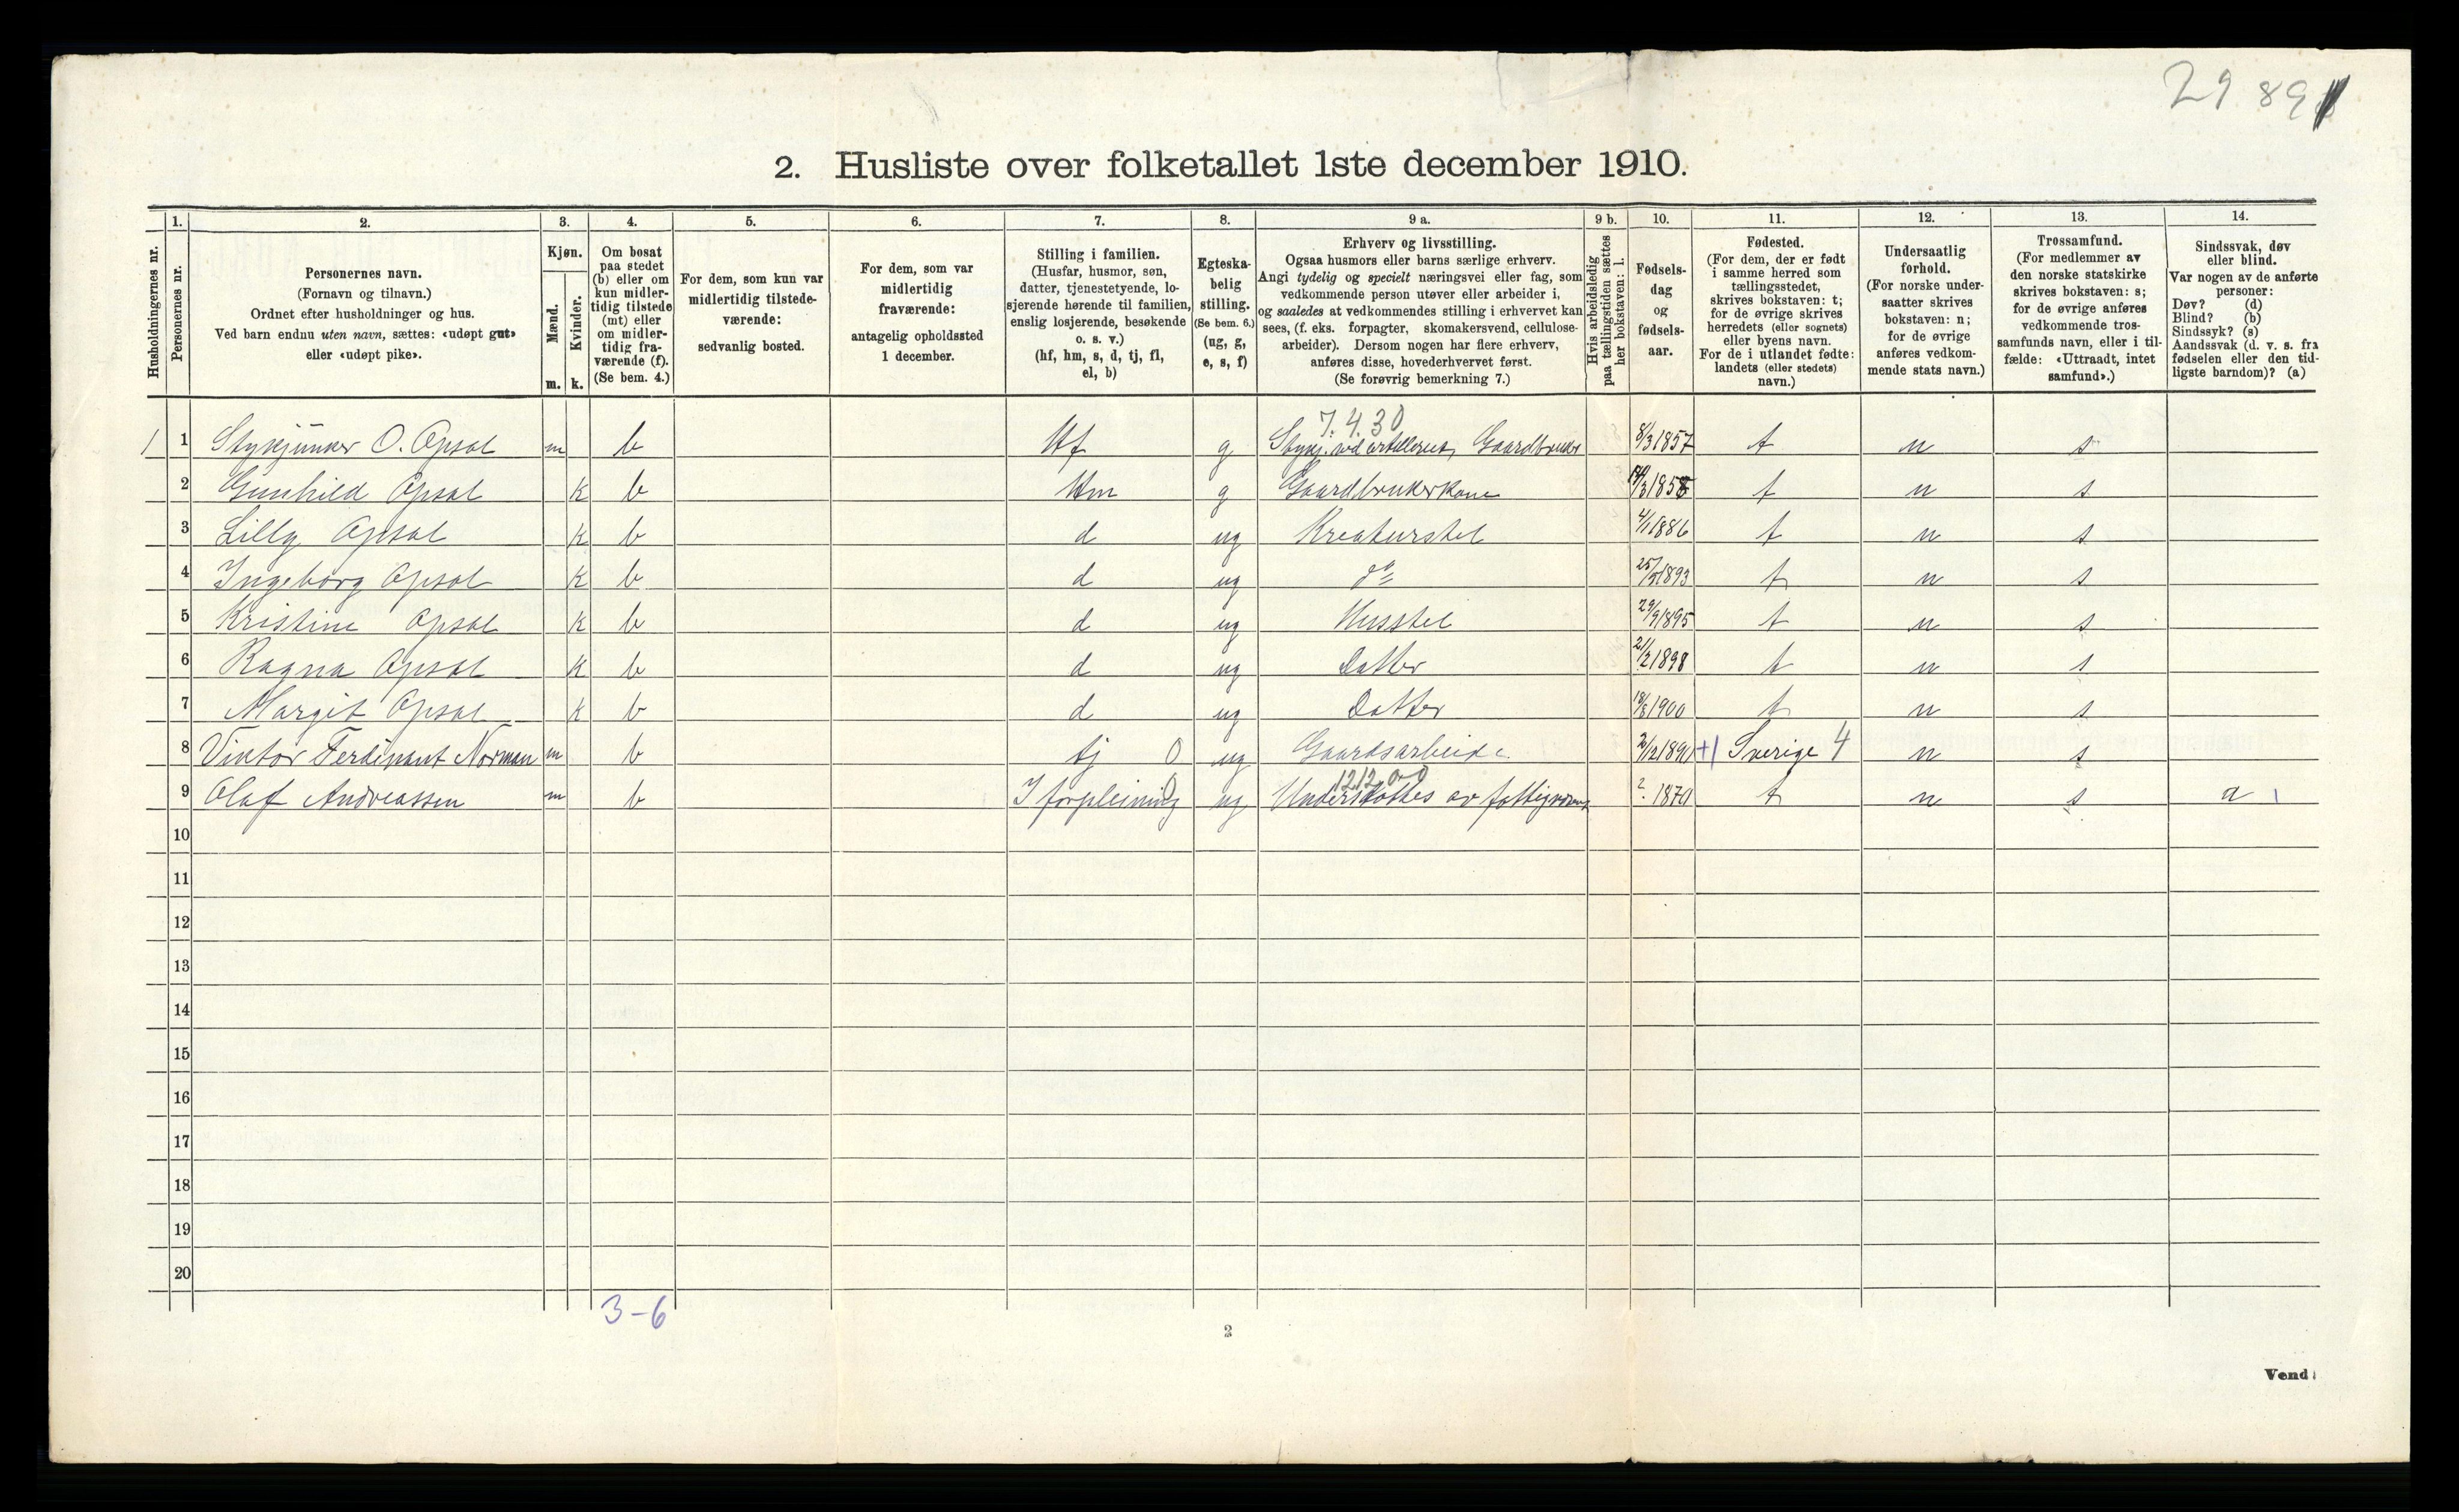 29 89
2. Husliste over folketallet 1ste december 1910.
1. 2. 3. 4. 5. 6. 7. 8. 9 a. 9 b. 10. 11. 12. 13. 14.
Husholdningernes nr.
Personernes nr.
Personernes navn.
(Fornavn og tilnavn.)
Ordnet efter husholdninger og hus.
Ved barn endnu uten navn, sættes: «udøpt gut»
eller «udøpt pike».
Kjøn.
Mænd.
Kvinder.
m. k.
Om bosat
paa stedet
(b) eller om
kun midler-
tidig tilstede
(mt) eller
om midler-
tidig fra-
værende (f).
(Se bem. 4.)
For dem, som kun var
midlertidig tilstede-
værende:
sedvanlig bosted.
For dem, som var
midlertidig
fraværende:
antagelig opholdssted
1 december.
Stilling i familien.
(Husfar, husmor, søn,
datter, tjenestetyende, lo-
sjerende hørende til familien,
enslig losjerende, besøkende
o. s. v.)
(hf, hm, s, d, tj, fl,
el, b)
Egteska-
belig
stilling.
(Se bem. 6.)
(ug, g,
e, s, f)
Erhverv og livsstilling.
Ogsaa husmors eller barns særlige erhverv.
Angi tydelig og specielt næringsvei eller fag, som
vedkommende person utøver eller arbeider i,
og saaledes at vedkommendes stilling i erhvervet kan
sees, (f. eks. forpagter, skomakersvend, cellulose-
arbeider). Dersom nogen har flere erhverv,
anføres disse, hovederhvervet først.
(Se forøvrig bemerkning 7.)
Hvis arbeidsledig
paa tællingstiden sættes
her bokstaven: l.
Fødsels-
dag
og
fødsels-
aar.
Fødested.
(For dem, der er født
i samme herred som
tællingsstedet,
skrives bokstaven: t;
for de øvrige skrives
herredets (eller sognets)
eller byens navn.
For de i utlandet fødte:
landets (eller stedets)
navn.)
Undersaatlig
forhold.
(For norske under-
saatter skrives
bokstaven: n;
for de øvrige
anføres vedkom-
mende stats navn.)
Trossamfund.
(For medlemmer av
den norske statskirke
skrives bokstaven: s;
for de øvrige anføres
vedkommende tros-
samfunds navn, eller i til-
fælde: «Uttraadt, intet
samfund».)
Sindssvak, døv
eller blind.
Var nogen av de anførte
personer:
Døv? (d)
Blind? (b)
Sindssyk? (s)
Aandssvak (d. v. s. fra
fødselen eller den tid-
ligste barndom)? (a)
7.4.30
1 1 Stykjunker O. Opsal m b Hf g Stykj. ved artilleriet, Gaardbruker 8/3 1857 t n s
2 Gunhild Opsal k b Hm g Gaardbrukerkone t n s
3 Lilly Opsal k b d ug Kreaturstel 4/1 1886 t n s
4 Ingeborg Opsal k b d ug do 1893 t n s
5 Kristine Opsal k b d ug Husstel 29/9 1895 t n s
6 Ragna Opsal k b d ug Datter 21/2 1898 t n s
7 Margit Opsal k b d ug Datter 18/8 1900 t n s
8 Viktor Ferdinant Norman m b tj 0 ug Gaardsarbeide +1 Sverige 4 n s
1212.00
9 Olaf Andreassen m b I forpleining 0 ug Understøttes av fattigvæsen ? 1870 t n s a 1
10
11
12
13
14
15
16
17
18
19
20
3-6
2
Vend!